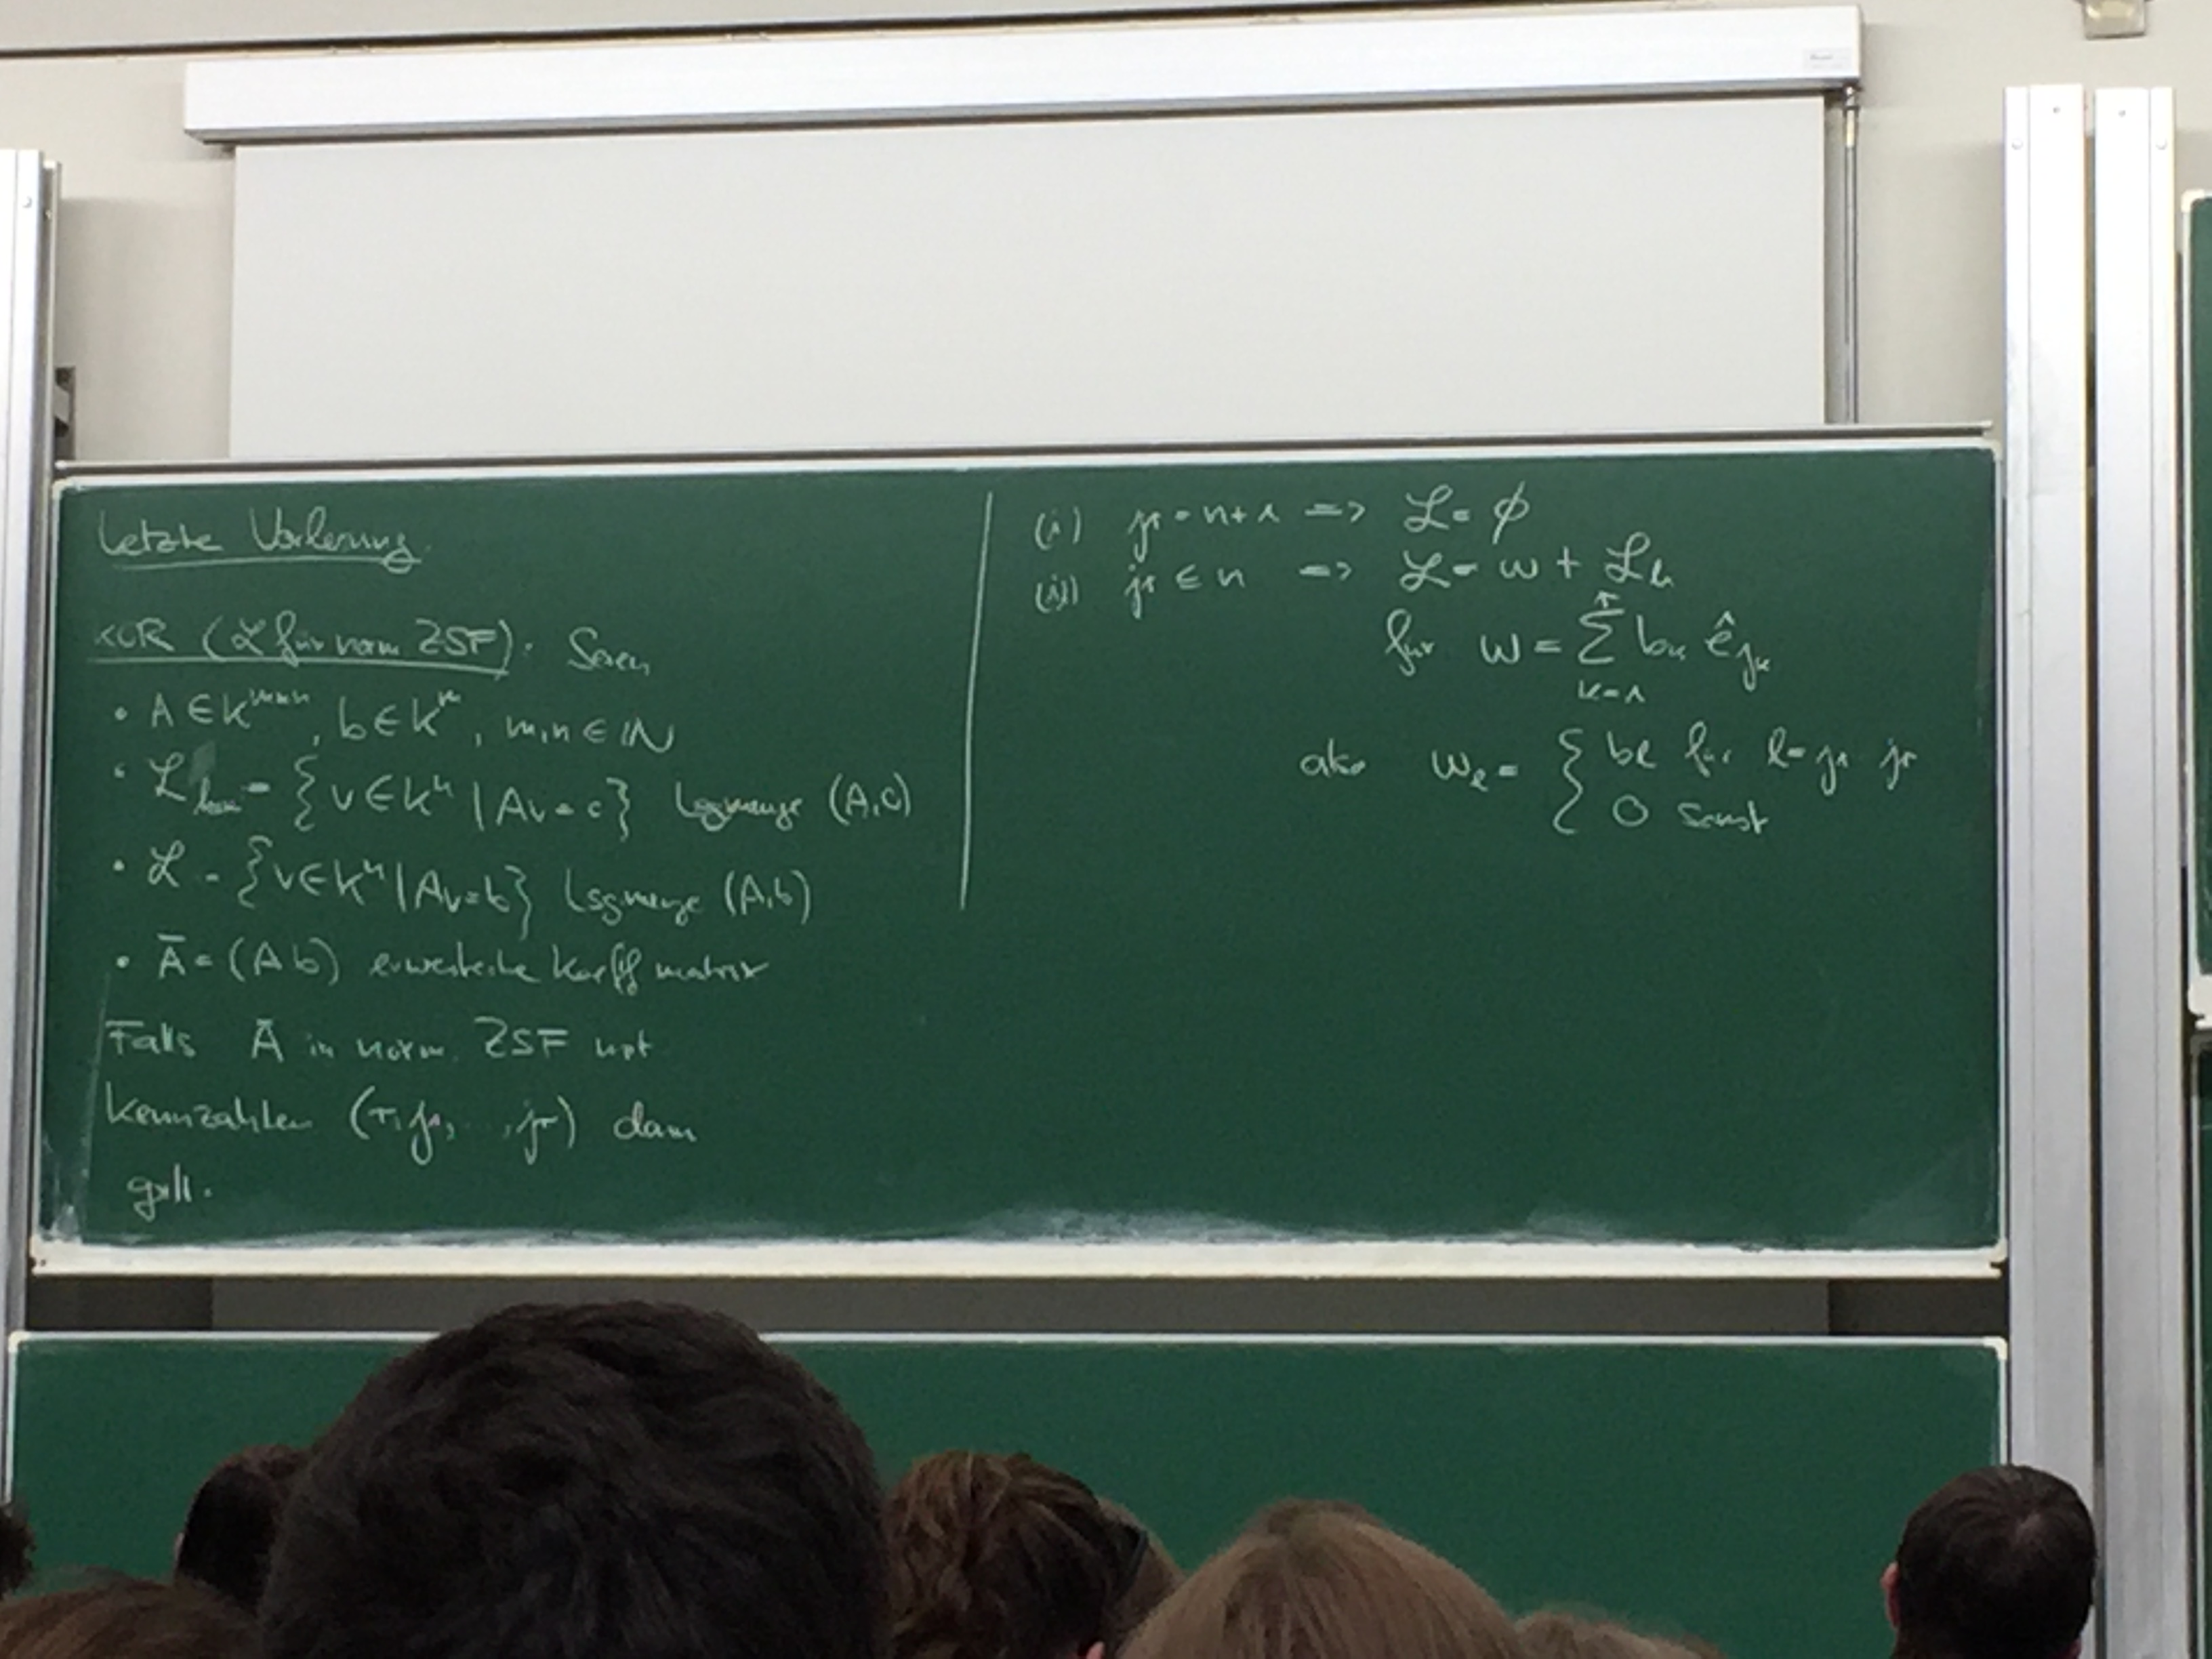 Letzte Vorlesung
KOR (ℒ für norm ZSF). Seien
• A ∈ K^{m×n}, b ∈ K^m, m,n ∈ ℕ
• ℒ_hom = {v ∈ K^n | Av = c} Lsgmenge (A,c)
• ℒ = {v ∈ K^n | Av = b} Lsgmenge (A,b)
• Ā = (A b) erweiterte Koeffmatrix
Falls Ā in norm. ZSF mit
Kennzahlen (r, j₁, ..., jr) dann
gilt.
(i) jr = n+1 => ℒ = ∅
(ii) jr ≤ n => ℒ = w + ℒ_h
für w = \sum_{k=1}^{r} b_k ê_{j_k}
also w_ℓ = { bℓ für ℓ = j₁ jr
0 sonst